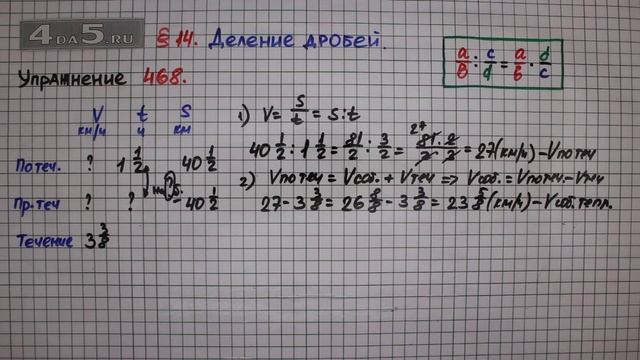 4DA5.RU
§ 14. Деление дробей.
a/в : c/d = a/в · d/c
Упражнение 468.
V км/ч t ч S км
По теч. ? 1 1/2 40 1/2
Пр. теч ? ? 40 1/2
Течение 3 3/8
1) V = S/t = S : t
40 1/2 : 1 1/2 = 81/2 : 3/2 = 81 · 2 / 2 · 3 = 27 (км/ч) – V по теч
27
2) V по теч = V соб. + V теч ⇒ V соб. = V по теч. – V теч
27 - 3 3/8 = 26 8/8 - 3 3/8 = 23 5/8 (км/ч) – V соб. тепл.